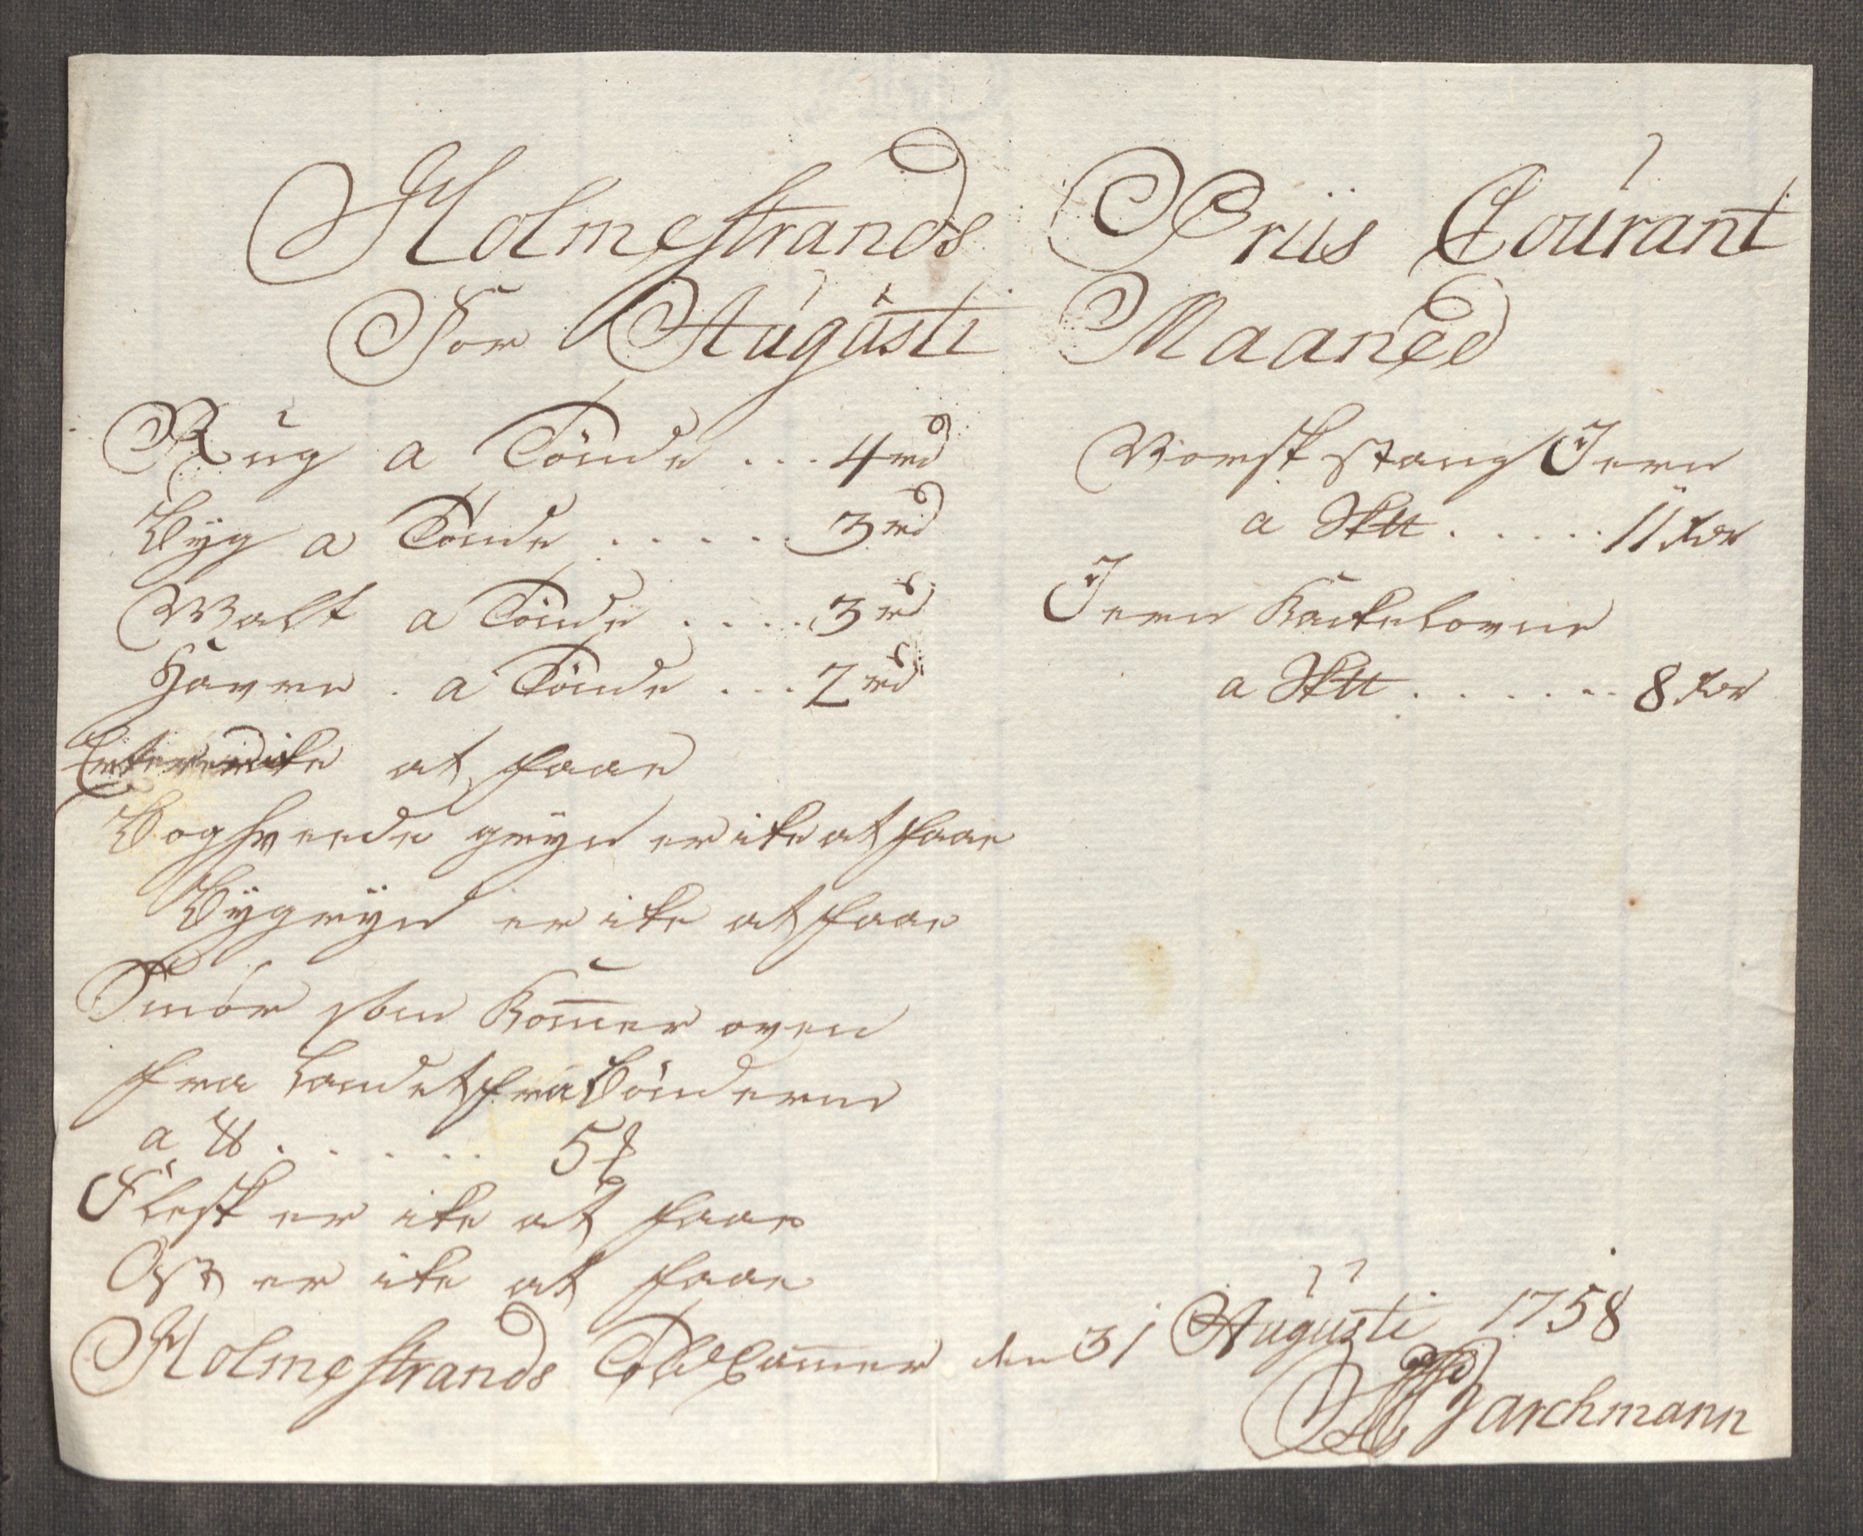 Holmestrands Priis Courant
For Augusti Maaned
Rug a Tönde ... 4 rd
Byg a Tönde ..... 3 rd
Malt a Tönde .... 3 rd
Havre . a Tönde ... 2 rd
Erter er ike at faae
Boghveede gryn er ike at faae
Bygryn er ike at faae
Smör som Kom̅er oven
fra Landet fra Bönderne
a ℔ ..... 5 ß
Flesk er ike at faae
Ost er ike at faae
Norsk stang Jern
a Sk℔ ..... 11 rdr
Jern Kackelovne
a Sk℔ ...... 8 rdr
Holmestrands Told Cam̅er den 31 Augusti 1758
Jarchmann